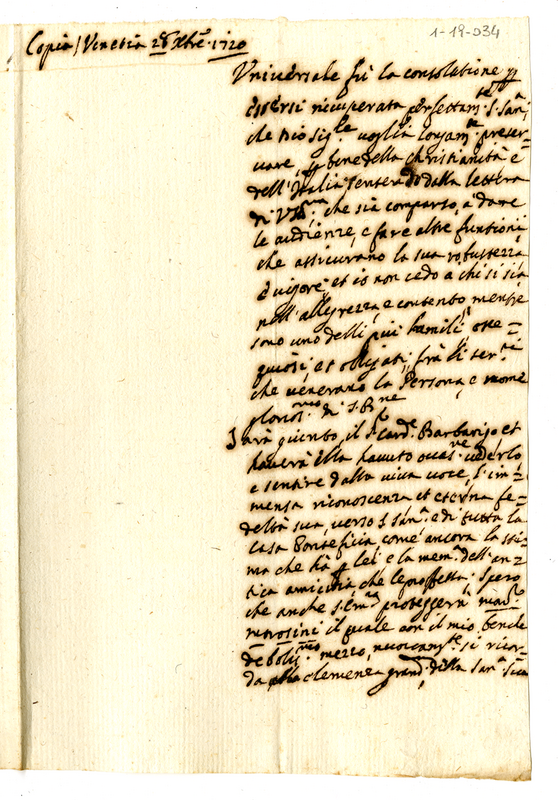 1-19-034
Copia / Venetia 28 Xbre 1720
Universale fù la consolatione p
essersi ricuperata perfettamte S. Santà
che Dio sigre voglia longamte preser=
vare, p bene della Christianità e
dell'Italia sentendo dalla lettera
di V. che sia comparso, à dare
le audienze, e fare altre funtioni
che assicurano la sua robustezza
è vigore, et io non cedo a chi si sia
nell'allegrezza, e contento mentre
sono uno delli più humili, osse=
quiosi, et obligati, frà li servi
che venerano la Persona, e nome
gloriosmo di S. Bne
Sarà giunto, il Sr Cardle Barbarigo et
haverà ella havuto ocasne vederlo
e sentire dalla viva voce, l'im=
mensa riconoscenza et eterna fe=
deltà sua, verso S Santà e di tutta la
Casa Pontificia come ancora la sti=
ma che hà p lei e la memà dell'an=
tica amicitia, che le proffessa; spero
che anche S. Emza proteggerà
Morosini il quale con il mio, benche
debolissmo mezzo, nuovamte si ricor=
da alla clemenza grande della Santà Sua